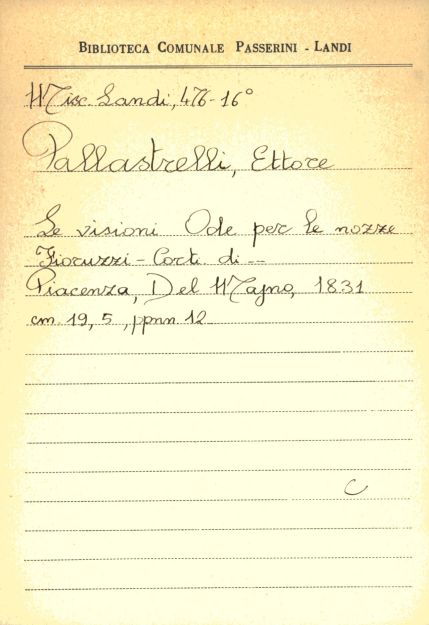 BIBLIOTECA COMUNALE PASSERINI - LANDI
Misc. Landi, 476-16°
Pallastrelli, Ettore
Le visioni Ode per le nozze
Fioruzzi - Corti di --
Piacenza, Del Majno, 1831
cm. 19,5, ppnn. 12
C